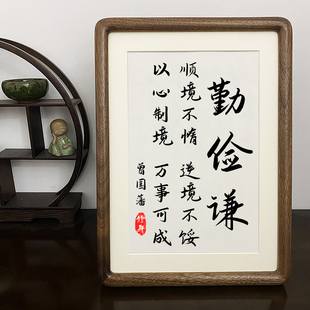 勤俭谦
顺境不惰 逆境不馁
以心制境 万事可成
曾国藩